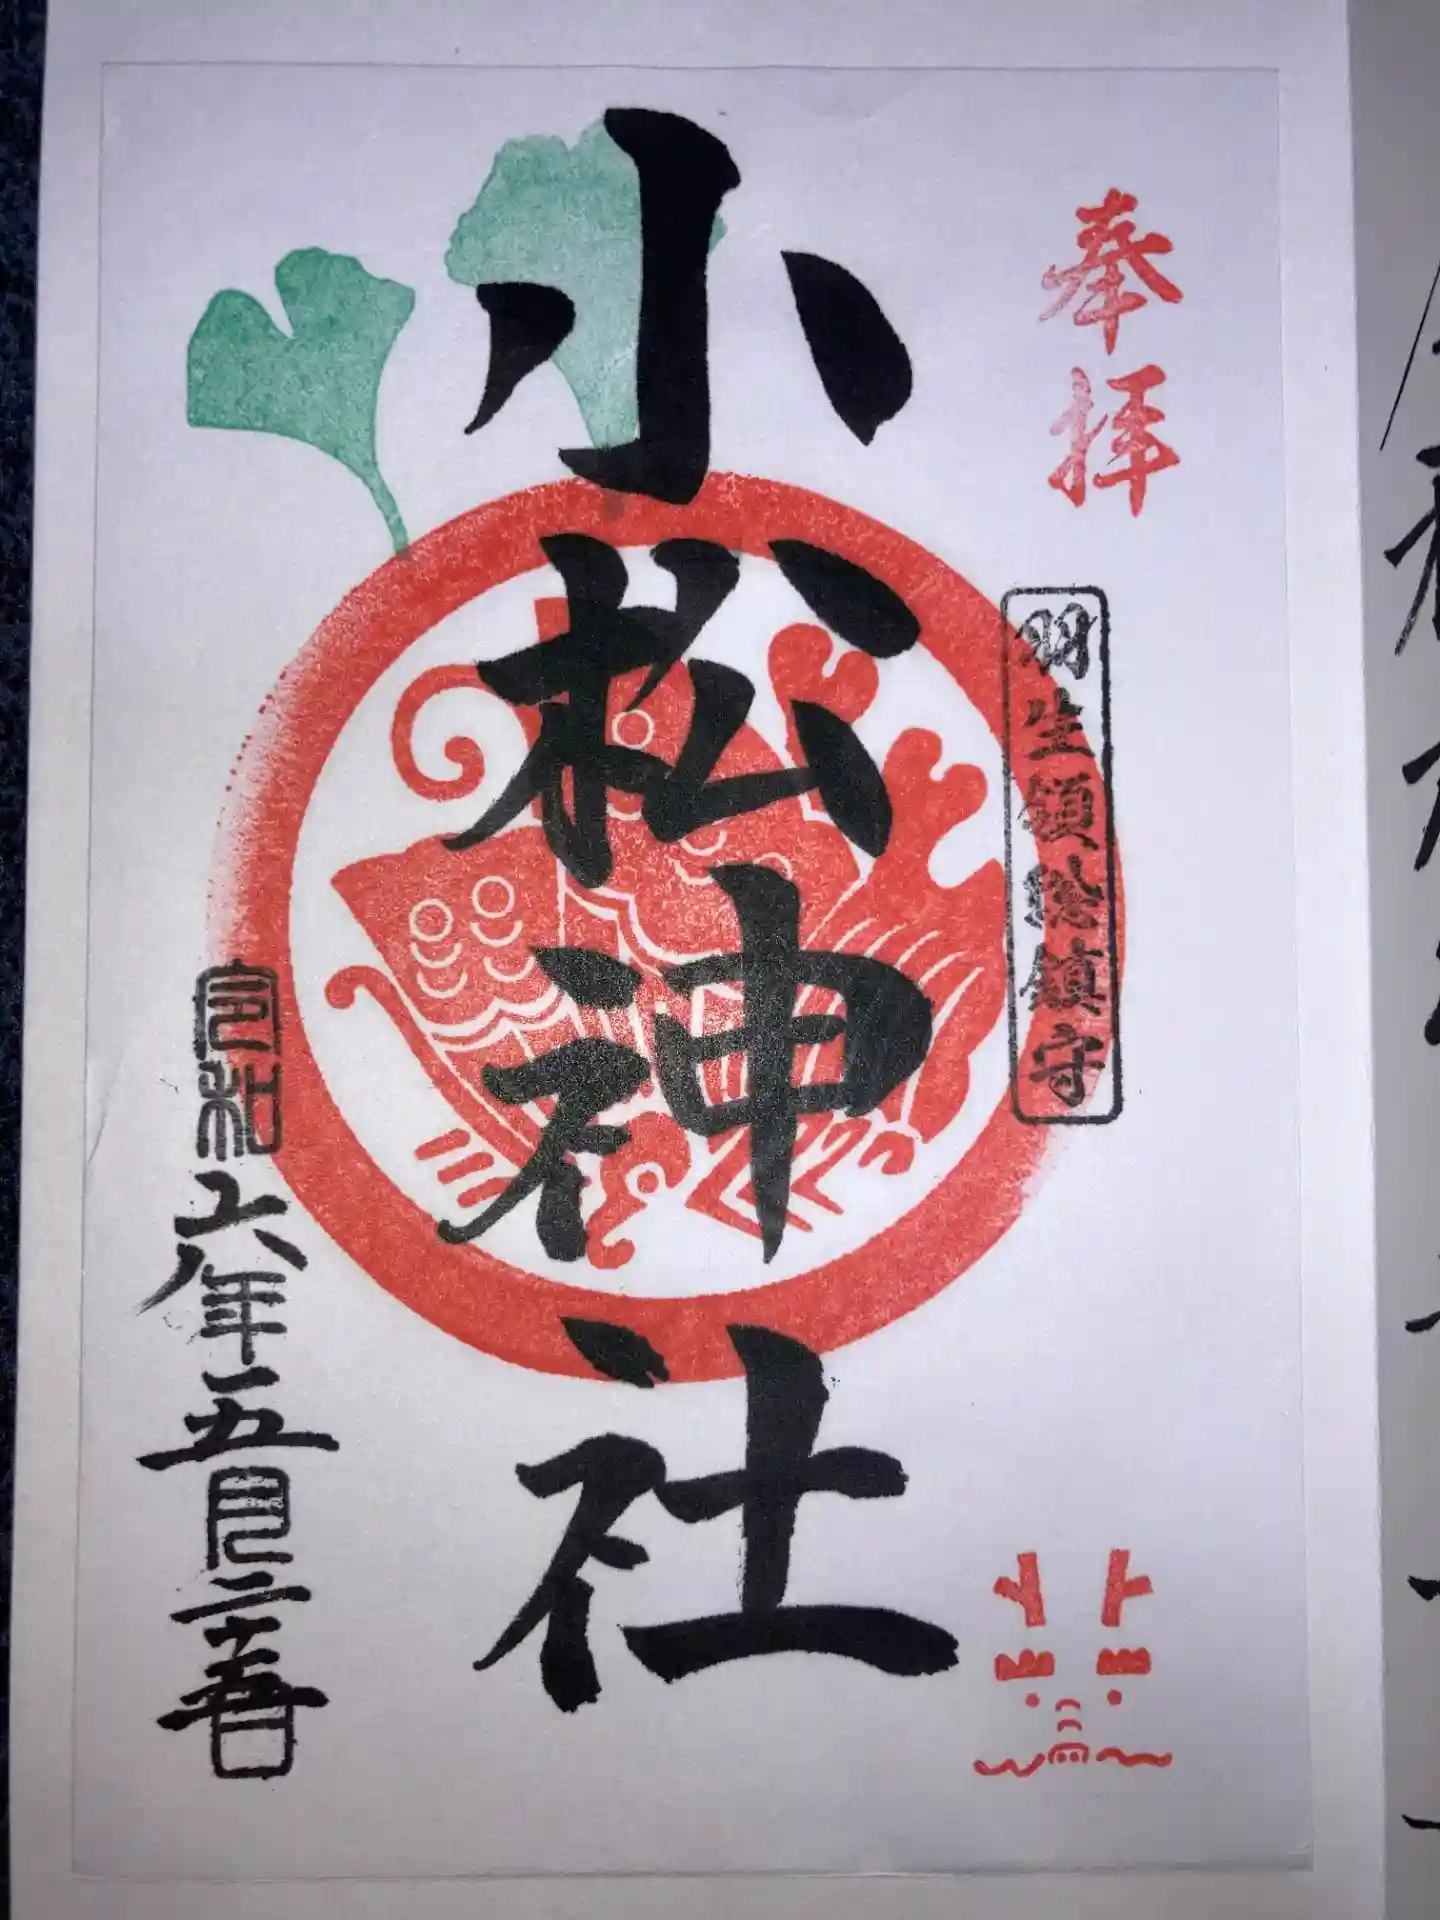 奉拝
羽生領総鎮守
小松神社
令和六年五月二十五日